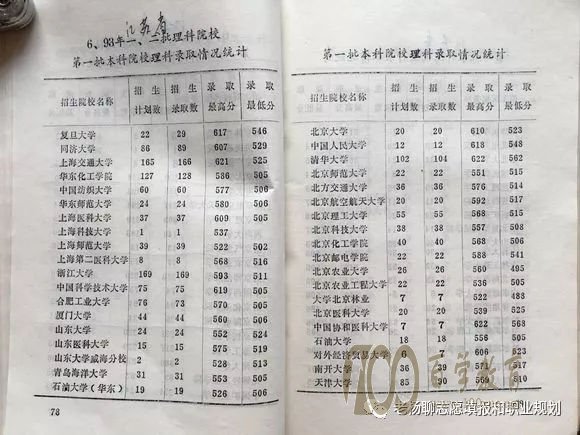 江苏省
6、93年一、二批理科院校
第一批本科院校理科录取情况统计
招生院校名称 招生计划数 招生录取数 录取最高分 录取最低分
复旦大学 22 29 617 546
同济大学 86 89 607 529
上海交通大学 165 166 621 525
华东化工学院 127 128 586 505
中国纺织大学 60 60 577 506
华东师范大学 24 24 580 506
上海医科大学 37 37 609 505
上海科技大学 1 1 537
上海师范大学 39 39 522 502
上海第二医科大学 8 8 568 516
浙江大学 169 169 593 511
中国科学技术大学 75 76 619 560
合肥工业大学 76 73 570 509
厦门大学 44 44 560 506
山东大学 24 24 552 504
山东医科大学 15 15 575 519
山东大学威海分校 2 2 528 513
青岛海洋大学 31 31 553 505
石油大学(华东) 19 19 526 506
78
第一批本科院校理科录取情况统计
招生院校名称 招生计划数 招生录取数 录取最高分 录取最低分
北京大学 20 20 610 523
中国人民大学 12 13 618 548
清华大学 102 104 622 562
北京师范大学 22 22 551 515
北方交通大学 36 36 576 514
北京航空航天大学 20 20 592 517
北京理工大学 55 55 568 515
北京科技大学 38 38 508
北京化工学院 40 40 568 506
北京邮电学院 22 22 541
北京农业大学 26 26 560 495
北京农业工程大学 22 22 536 501
大学北京林业 7 7 522 488
北京医科大学 20 20 539 525
中国协和医科大学 7 7 622 568
石油大学 18 18 556 505
对外经济贸易大学 6 7 606 523
南开大学 31 36 569 500
天津大学 85 90 580 510
百学教育
100xue.com
老汤聊志愿填报和职业规划